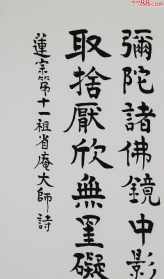 彌陀諸佛鏡中影
取捨厭欣無罣礙
蓮宗第十一祖省庵大師詩